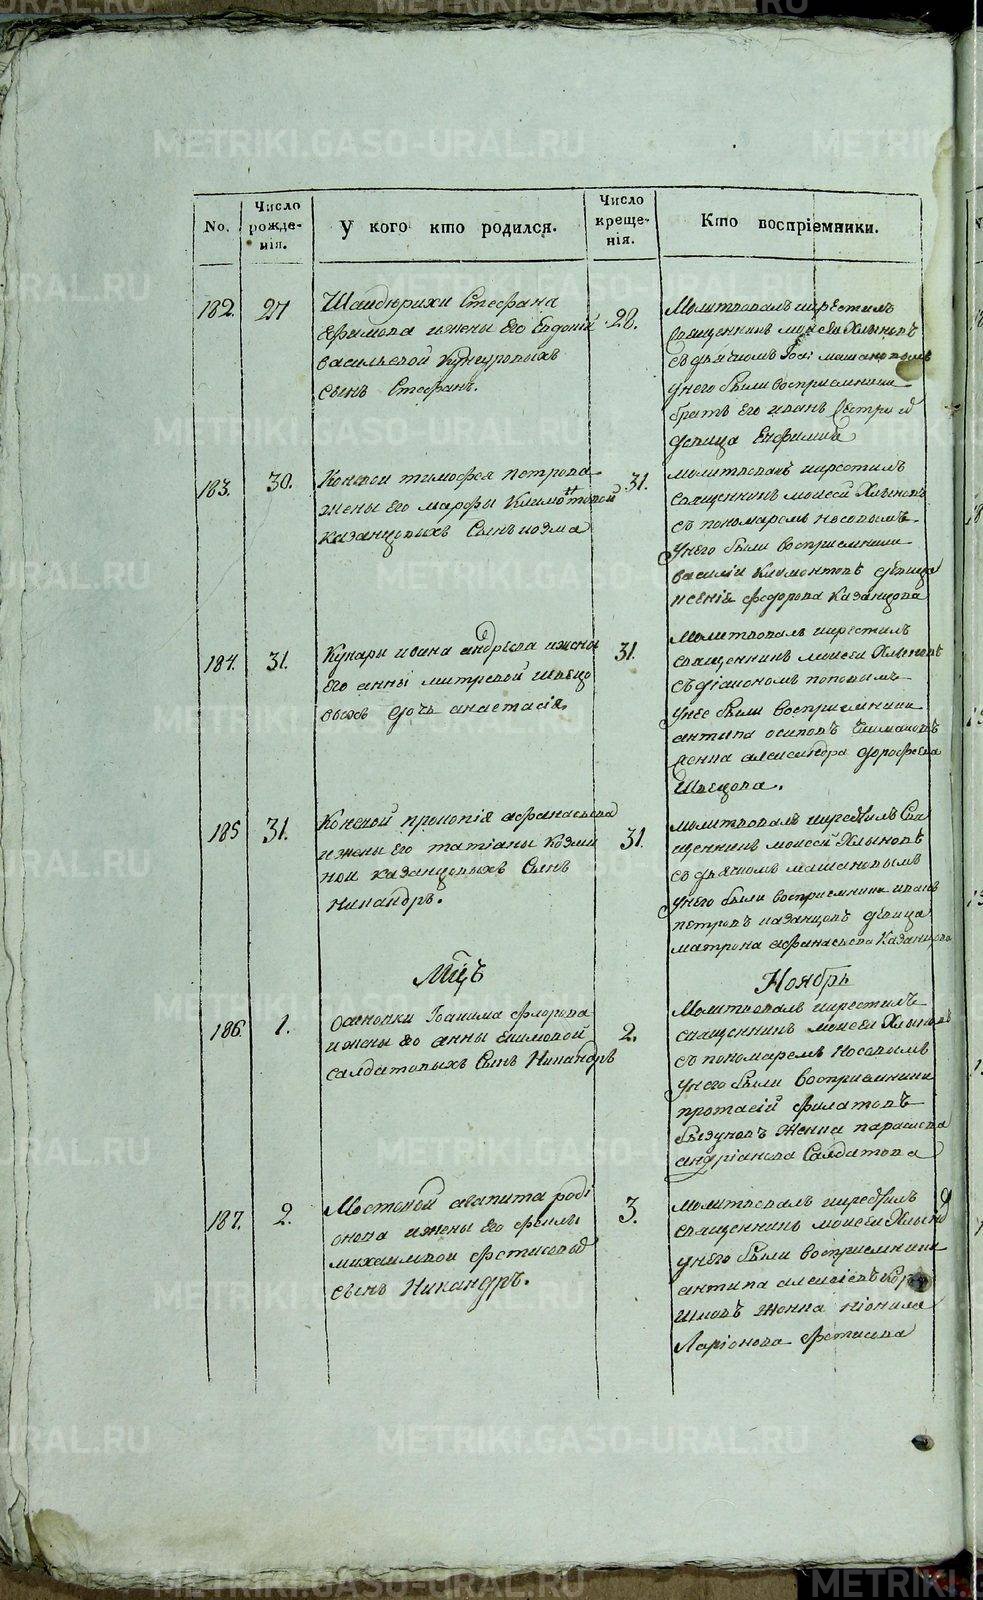 METRIKI.GASO-URAL.RU
No.
Число рожде-нія.
У кого кто родился.
Число креще-нія.
Кто воспріемники.
182.
27
Шайдюрихи Стефана
Ефимова и жены Его Евдокіи
васильевой Кунгуровыхъ
сынъ Стефанъ.
28.
Молитвовалъ и крестилъ
священникъ моисей Хлыновъ
съ дьячкомъ
у него были восприемники
братъ его иванъ
девица Енфимия
183.
30.
Коневой тимофея петрова
жены его марфы
казанцовыхъ Сынъ козма
31.
молитвовалъ и крестилъ
священникъ моисей Хлыновъ
съ пономаремъ носовымъ.
у него были восприемники
василій Климонтовъ девица
ксенія федорова Казанцова
184.
31.
Кунары ивана андреева и жены
его анны митревой швецо
выхъ дочь анастасія.
31.
молитвовалъ и крестилъ
священникъ моисей Хлыновъ
съ діакономъ поповымъ
у нее были восприемники
антипа осиповъ
женка александра дорофеева
Швецова.
185
31.
Коневой прокопія афанасьева
и жены его татіаны Козми
ной казанцовыхъ Сынъ
Никандръ.
31.
молитвовалъ и крестилъ Свя
щенникъ моисей Хлыновъ
съ дьячкомъ машановымъ
у него были восприемники иванъ
петровъ казанцовъ девица
матрона афанасьева Казанцова
Мцъ
Ноябрь
186
1.
осиновки Іоакима Фролова
и жены его анны Екимовой
салдатовыхъ Сынъ Никандръ
2.
Молитвовалъ и крестилъ
священникъ моисей Хлыновъ
съ пономаремъ Носовымъ
у него были восприемники
протасій филатовъ
женка параскева
андріанова Салдатова
187.
2.
Мостовой агапита роді
онова и жены Его феклы
михайловой фетисовыхъ
сынъ Никандръ.
3.
молитвовалъ и крестилъ
священникъ моисей
у него были восприемники
антипа алексіевъ
шковъ женка
Ларіонова фетисова